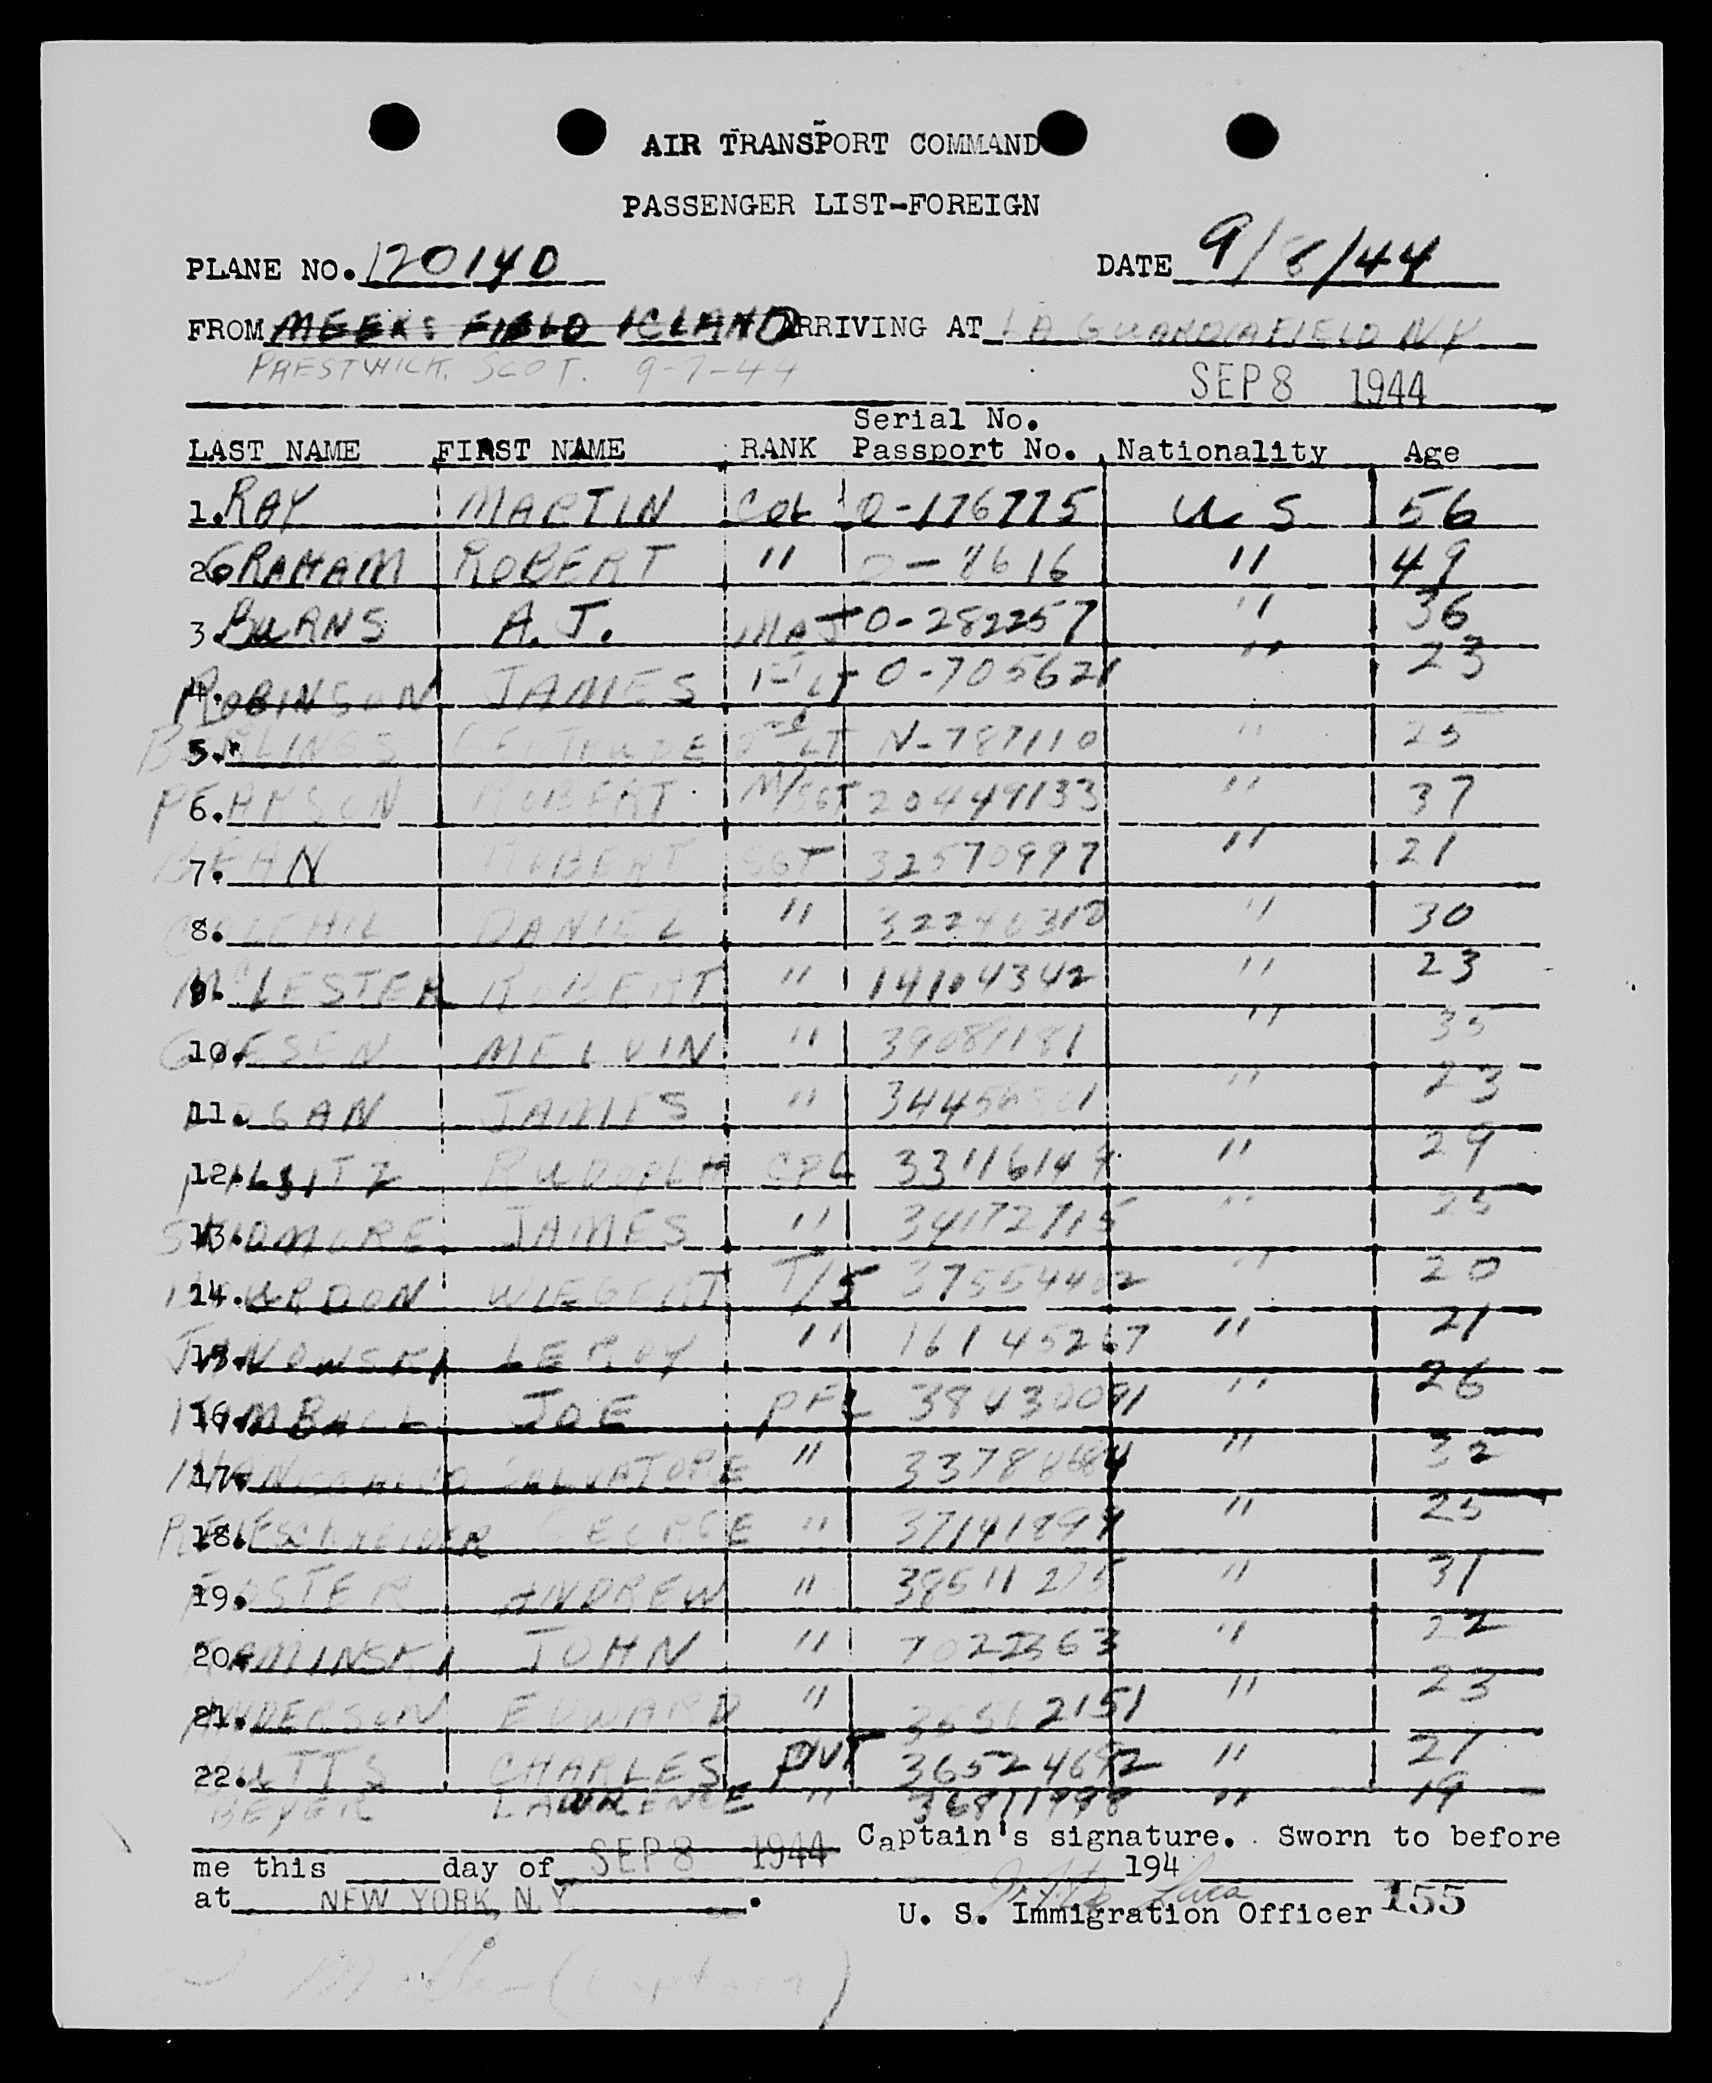 AIR TRANSPORT COMMAND
PASSENGER LIST-FOREIGN
PLANE NO. 120140 DATE 9/8/44
FROM MEEKS FIELD ICLAND ARRIVING AT LA GUARDIA FIELD N.Y
PRESTWICK, SCOT. 9-7-44
SEP 8 1944
Serial No.
LAST NAME FIRST NAME RANK Passport No. Nationality Age
1. RAY MARTIN COL O-176775 U S 56
2. GRAHAM ROBERT " O-8616 " 49
3. BURNS A. J. MAJ O-282257 " 36
4. ROBINSON JAMES 1st LT O-705621 " 23
5. 2nd LT N-787110 " 25
6. PEARSON ROBERT M/SGT 20449133 " 37
7. BEAN ROBERT SGT 32570997 " 21
8. DANIEL " " 30
9. McLESTER ROBERT " 14104342 " 23
10. MELVIN " 39089181 " 35
11. LOGAN JAMES " " 23
12. RUDOPLH CPL 33116149 " 29
13. SKIDMORE JAMES " 34172715 " 25
14. WIEGERT T/5 37554402 " 20
15. JANOWSKI LEROY " 16145267 " 21
16. JOE PFC 38430091 " 26
17. SALVATORE " " 32
18. GEORGE " " 25
19. FOSTER ANDREW " 38511275 " 31
20. KAMINSKI JOHN " 7022363 " 22
21. ANDERSON EDWARD " " 23
22. BUTTS CHARLES PVT 36524692 " 21
BEYER LAWRENCE " " 19
Captain's signature. Sworn to before
me this day of SEP 8 1944 194
at NEW YORK, N.Y. .
U. S. Immigration Officer 155
(Captain)